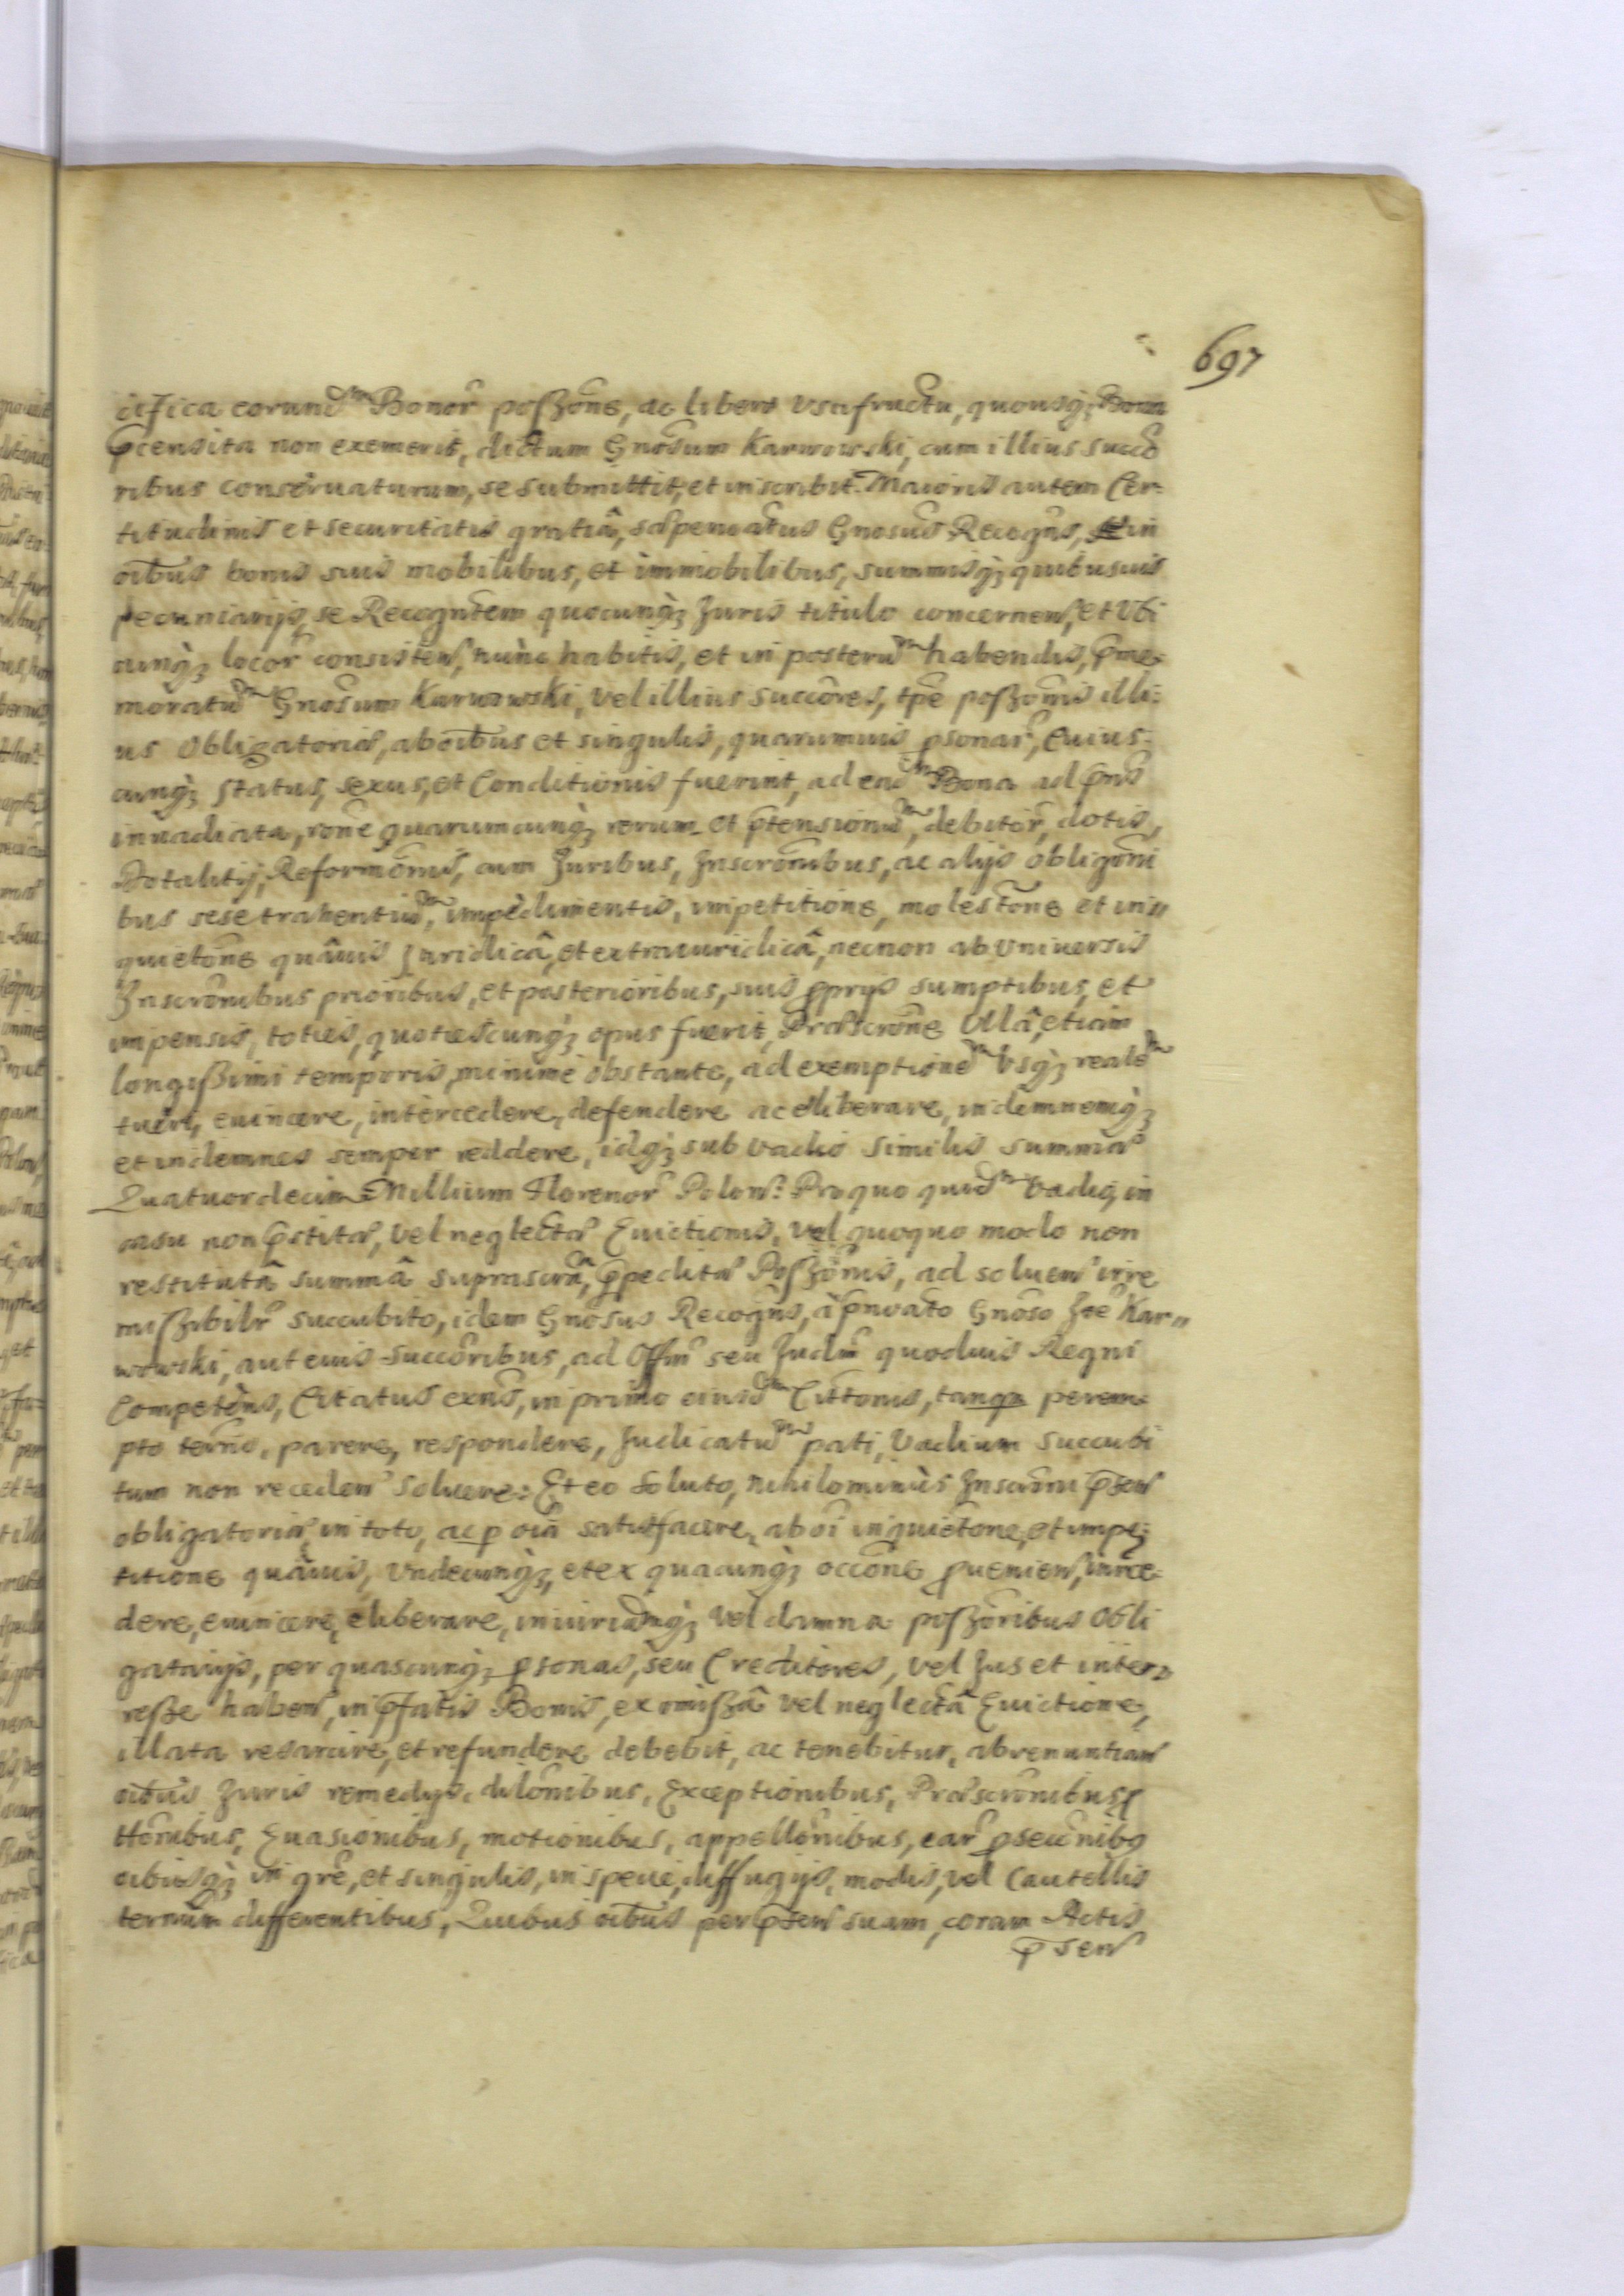 697
cifica eorund͠m Bonor̃ poßõne, ac libero Vsufructu, quousq; Bona
p̃censita non exemerit, dictum Gnõsum Karwowski, cum illius succõ
ribus conseruaturum, se submittit, et inscribit. Maioris autem Cer=
titudinis et securitatis gratiâ, Gnõsus Recogñs, in
oĩbus bonis suis mobilibus, et immobilibus, summisq; quibusuis
pecuniarijs, se Recogñtem quocunq; Juris titulo concerneñ, et Vbi
cunq; locor̃ consisteñ, nunc habitis, et in posterũ habendis, p̃me-
moratũ Gnõsum Karwowski, vel illius succõres, tp̃e poßõnis illi:
us obligatoriæ, ab oĩbus et singulis, quarumuis p̱sonar̃, cuius:
cunq; status, sexus, et Conditionis fuerint, ad ead͠m Bona ad p̃ns
inuadiata, rõne quarumcunq; rerum et p̃tensionũ, debitor̃, dotis,
Dotalitij, Reformõnis, cum Juribus, Inscrõnibus, ac alijs obligõni
bus sese trahentiũ, impedimentis, impetitione, molestõne et in=
quietõne quâuis Juridicâ, et extraiuridicâ, necnon ab Vniuersis
Inscrõnibus prioribus, et posterioribus, suis p̱prijs sumptibus, et
impensis, toties, quotiescunq; opus fuerit, Præscrõne Vllâ, etiam
longißimi temporis, minimè obstante, ad exemptionẽ Vsq; realẽ
tueri, euincere, intercedere, defendere ac eliberare, indemnemq;
et indemnes semper reddere, idq; sub vadio similis summæ
Quatuordecim Millium Florenor̃ Poloñ: Pro quo quid͠m Vadio, in
casu non p̃stitæ, vel neglectæ Euictionis, vel quoquo modo non
restitutâ summâ suprascr̃â, p̃peditæ Poßõnis, ad solueñ irre
mißibilr̃ succubito, idem Gnõsus Recogñs, Gnõso Kar=
wowski, aut eius succõribus, ad Offm̃ seu Judm̃ quoduis Regni
Competens, Citatus exñs, in primo eiusd͠m Cittõnis, tanqm̃ perem-
pto termo, parere, respondere, Judicatũ pati, Vadium succubi
tum non recedeñ soluere: Et eo soluto, nihilominùs Inscrõni p̃señ
obligatoriæ in toto, ac p̱ oĩa satisfacere, ab oĩ inquietõne, et impe:
titione quâuis, Vndecunq; et ex quacunq; occõne p̱uenieñ, interce-
dere, euincere, eliberare, iniuriamq; vel damna poßõribus Obli
gatarijs, per quascunq; p̱sonas, seu Creditores, vel Jus et inter=
reße habeñ, in p̃fatis Bonis, ex omißâ vel neglectâ Euictione,
illata resarcire, et refundere debebit, ac tenebitur, abrenuntiañ
oĩbus Juris remedijs, dilõnibus, Exceptionibus, Præscrõnibus,
ttõnibus, Euasionibus, motionibus, appellõnibus, ear̃ p̱secõnibg
oĩbusq; in gr̃e, et singulis, in specie, diffugijs, modis, vel Cautellis
termin differentibus, Quibus oĩbus per p̃señ suam, coram Actis
p̃señ